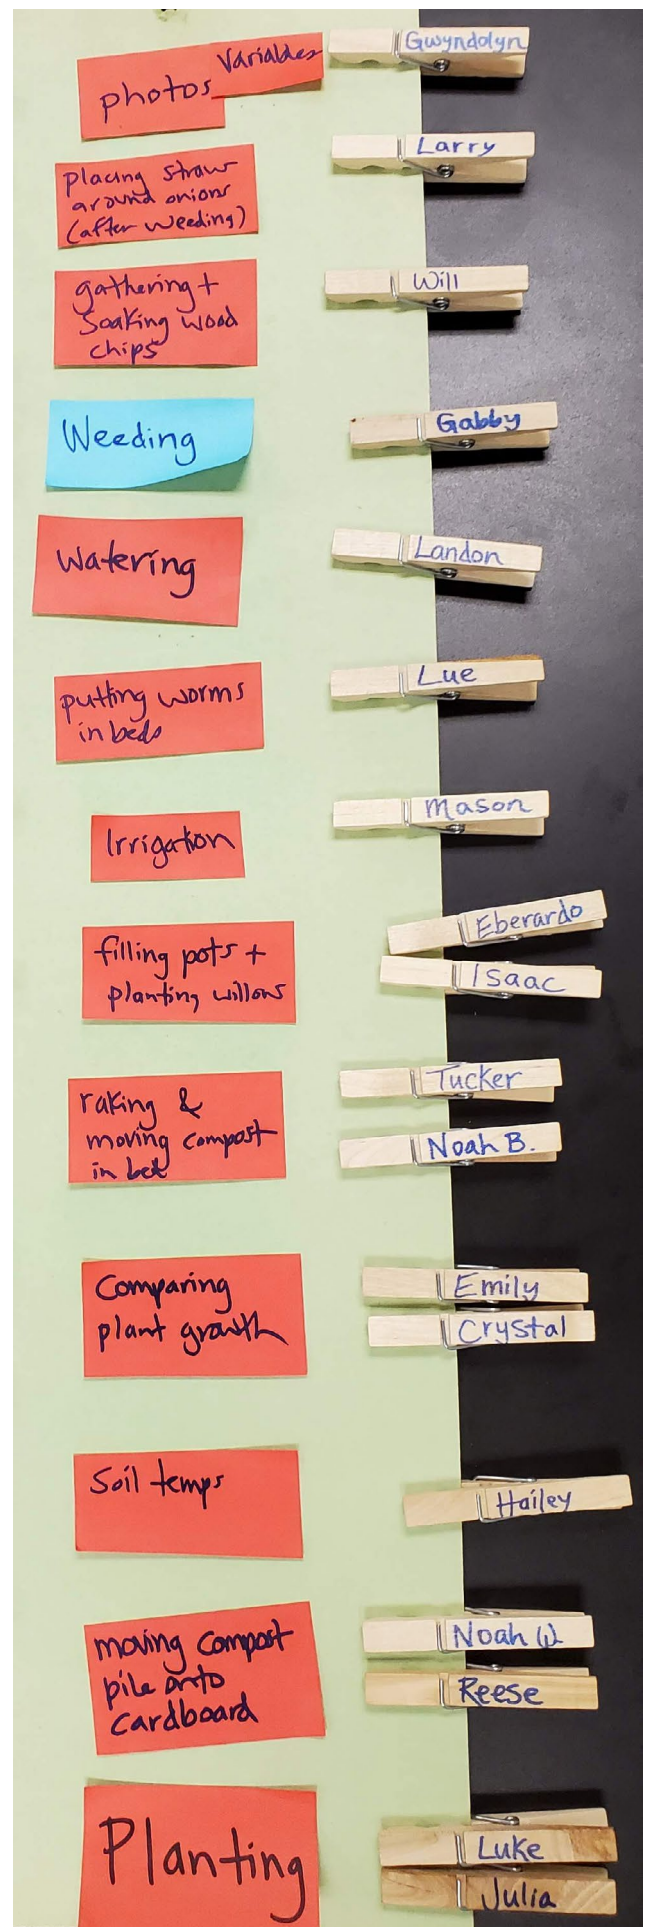 photos
Variables
Gwyndolyn
placing straw
around onions
(after weeding)
Larry
gathering +
soaking wood
chips
Will
Weeding
Gabby
Watering
Landon
putting worms
in beds
Lue
Irrigation
Mason
filling pots +
planting willows
Eberardo
Isaac
raking &
moving compost
in bet
Tucker
Noah B.
Comparing
plant growth
Emily
Crystal
Soil temps
Hailey
moving compost
pile onto
cardboard
Noah W
Reese
Planting
Luke
Julia